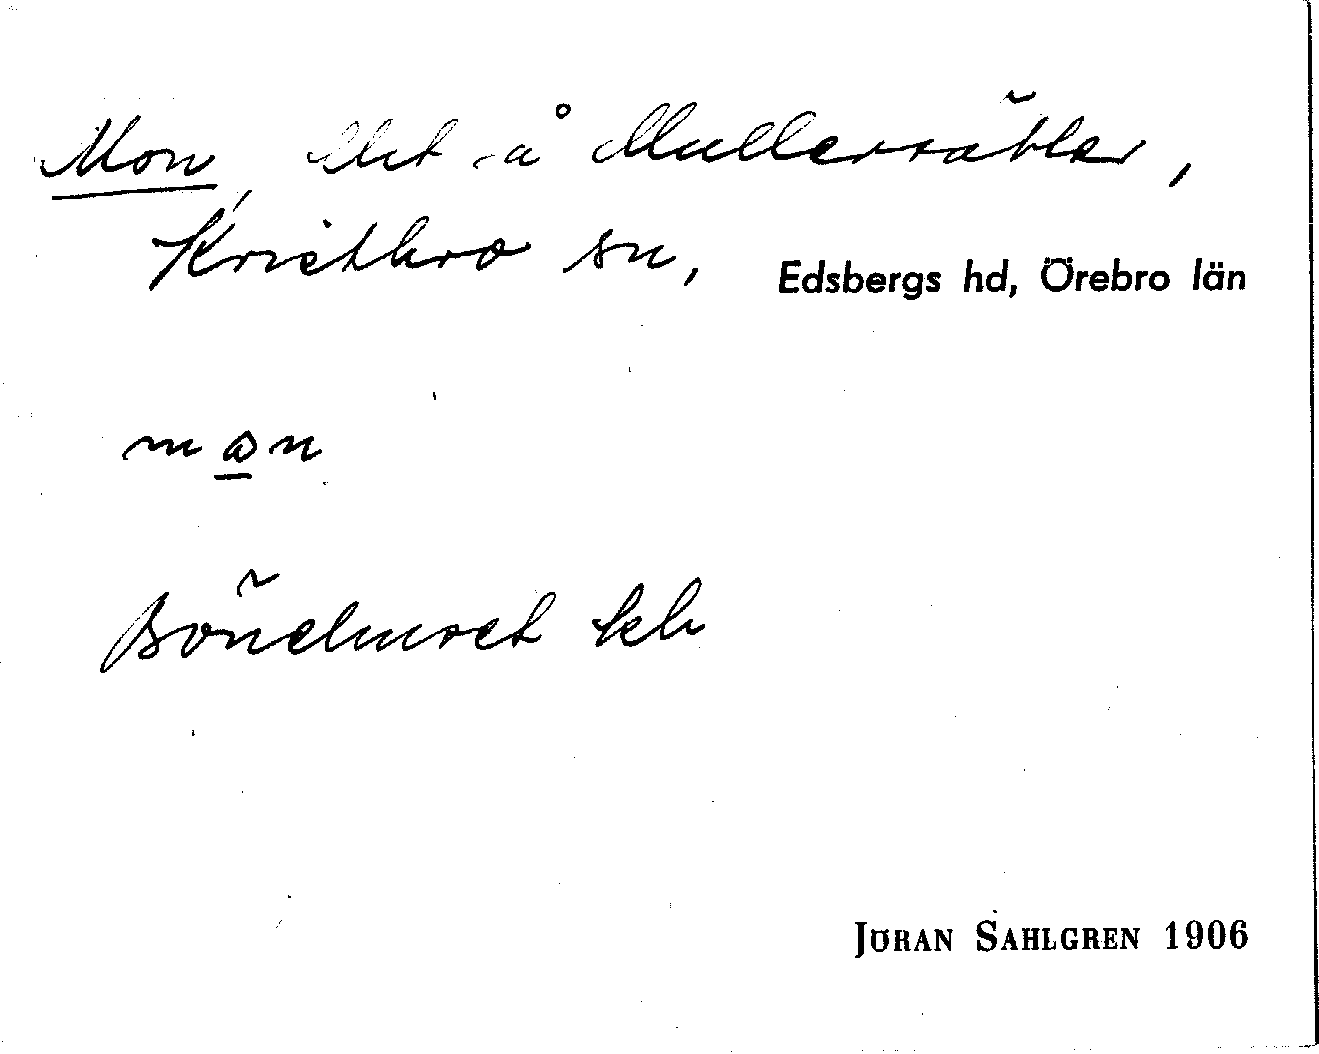 Mon, Utj. å Mullersäter,
Kvistbro sn, Edsbergs hd, Örebro län
mon
Bönehuset kb
JÖRAN SAHLGREN 1906